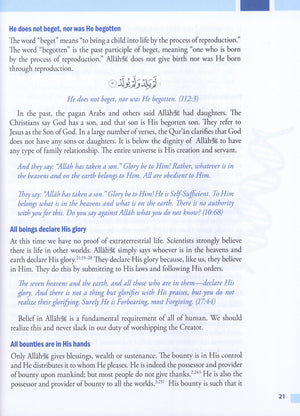 He does not beget, nor was He begotten
The word "beget" means "to bring a child into life by the process of reproduction."
The word "begotten" is the past participle of beget, meaning "one who is born
by the process of reproduction." Allāh does not give birth nor was He born
through reproduction.
لَمْ يَلِدْ وَلَمْ يُولَدْ
He does not beget, nor was He begotten. (112:3)
In the past, the pagan Arabs and others said Allāh had daughters. The
Christians say God has a son, and that son is His begotten son. They refer to
Jesus as the Son of God. In a large number of verses, the Qur'ān clarifies that God
does not have any sons or daughters. It is below the dignity of Allāh to have
any type of family relationship. The entire universe is His creation and servant.
And they say: "Allāh has taken a son." Glory be to Him! Rather, whatever is in
the heavens and on the earth belongs to Him. All are obedient to Him.
They say: "Allāh has taken a son." Glory be to Him! He is Self-Sufficient. To Him
belongs what is in the heavens and what is on the earth. There is no authority
with you for this. Do you say against Allāh what you do not know? (10:68)
All beings declare His glory
At this time we have no proof of extraterrestrial life. Scientists strongly believe
there is life in other worlds. Allāh simply says whoever is in the heavens and
earth declare His glory. They declare His glory because, like us, they believe
in Him. They do this by submitting to His laws and following His orders.
The seven heavens and the earth, and all those who are in them—declare His
glory. And there is not a thing but glorifies with His praises, but you do not
realize their glorifying. Surely He is Forbearing, most Forgiving. (17:44)
Belief in Allāh is a fundamental requirement of all of human. We should
realize this and never slack in our duty of worshipping the Creator.
All bounties are in His hands
Only Allāh gives blessings, wealth or sustenance. The bounty is in His control
and He distributes it to whom He pleases. He is indeed the possessor and provider
of bounty upon mankind; but most people do not give thanks. He is also the
possessor and provider of bounty to all the worlds. His bounty is such that it
21